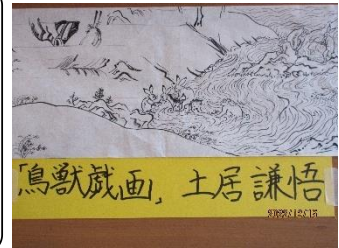 「鳥獣戯画」, 土居謙悟